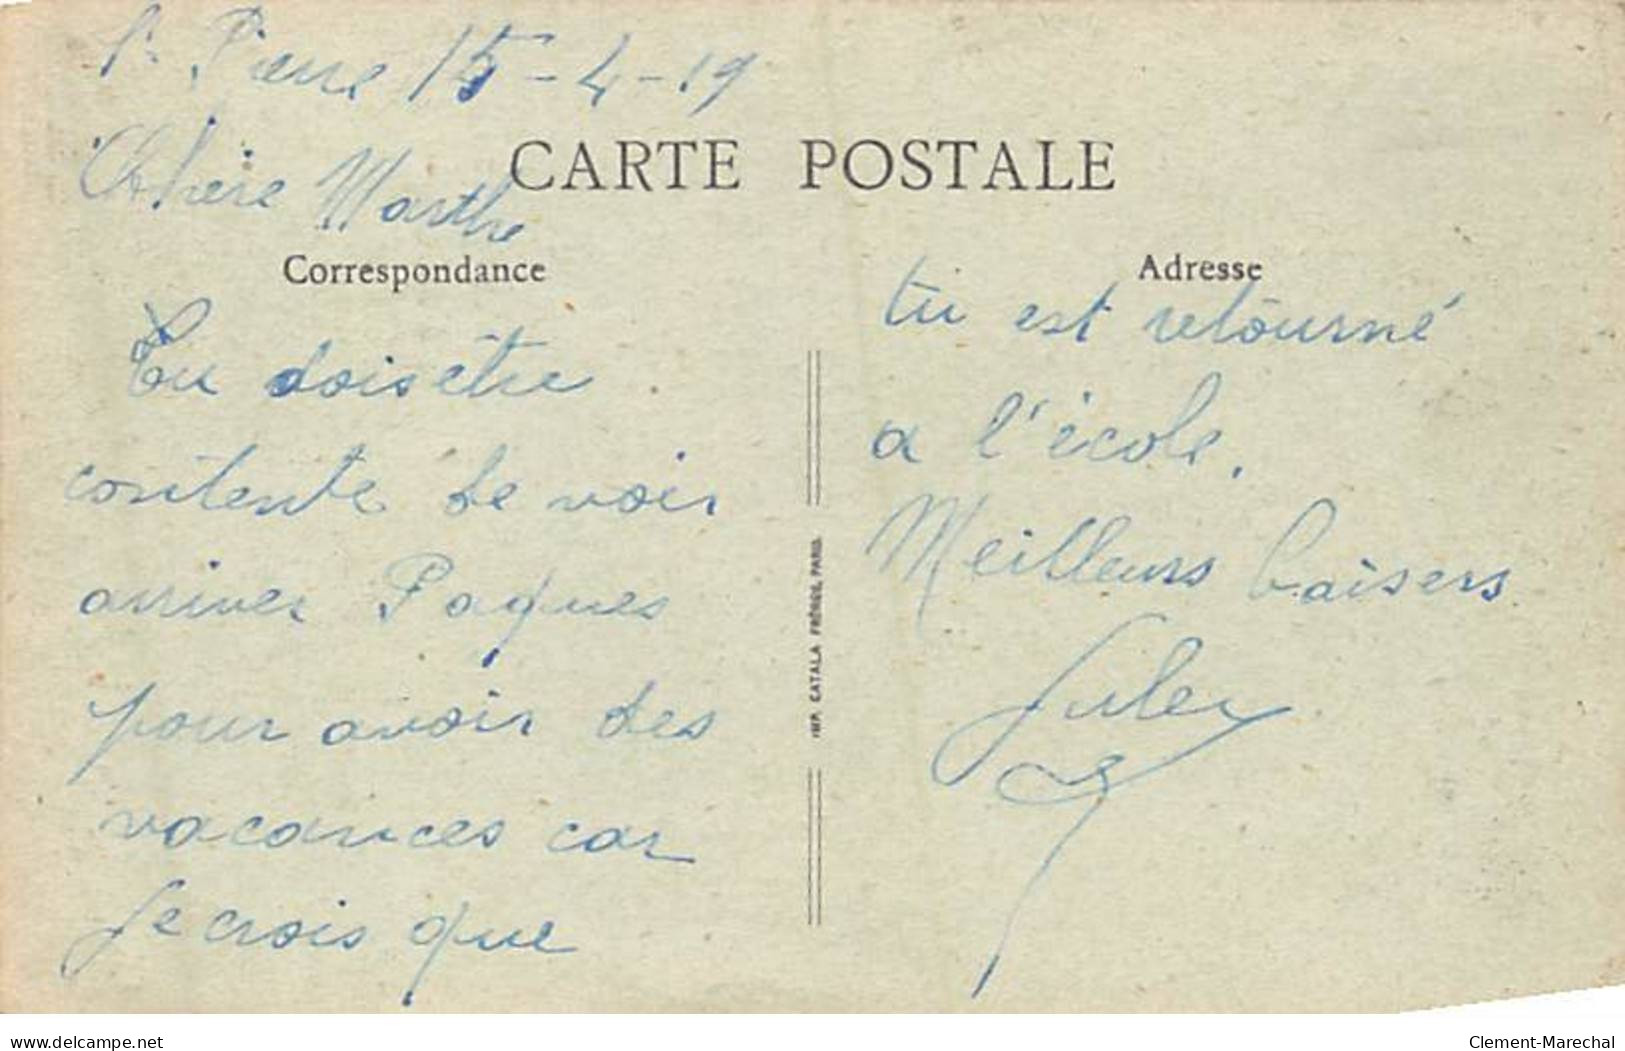 St Pierre 15-4-19
Chère Marthe
CARTE POSTALE
Correspondance
Tu dois être
contente de voir
arriver Paques
pour avoir des
vacances car
je crois que
IMP. CATALA FRÈRES, PARIS.
Adresse
tu est retourné
a l'école.
Meilleurs baisers
Jules
delcampe.net
Clement-Marechal